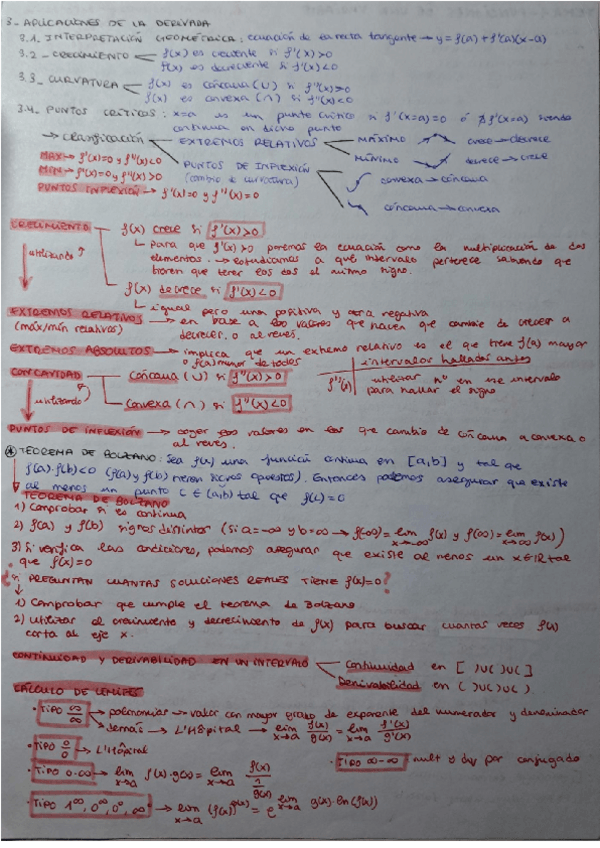 3_ APLICACIONES DE LA DERIVADA
3.1. INTERPRETACIÓN GEOMÉTRICA: ecuación de la recta tangente → y = f(a) + f'(a)(x-a)
3.2 _ CRECIMIENTO f(x) es creciente si f'(x)>0
f(x) es decreciente si f'(x)<0
3.3_ CURVATURA f(x) es cóncava (∪) si f''(x)>0
f(x) es convexa (∩) si f''(x)<0
3.4_ PUNTOS CRÍTICOS: x=a es un punto crítico si f'(x=a)=0 ó ∄f'(x=a) siendo
continua en dicho punto
→ Clasificación EXTREMOS RELATIVOS MÁXIMO crece → decrece
MÍNIMO decrece → crece
MAX → f'(x)=0 y f''(x)<0
MIN → f'(x)=0 y f''(x)>0
PUNTOS INFLEXIÓN → f'(x)=0 y f''(x)=0
PUNTOS DE INFLEXIÓN
(cambio de curvatura) convexa → cóncava
cóncava → convexa
CRECIMIENTO f(x) crece si f'(x)>0
para que f'(x)>0 ponemos la ecuación como la multiplicación de dos
elementos. → estudiamos a qué intervalo pertenece sabiendo que
tienen que tener los dos el mismo signo.
utilizando
f(x) decrece si f'(x)<0
igual pero una positiva y otra negativa
EXTREMOS RELATIVOS → en base a los valores que hacen que cambie de crecer a
(máx/mín relativos) decrecer o al revés.
EXTREMOS ABSOLUTOS → implica que un extremo relativo es el que tiene f(a) mayor
o f(a) menor de todos
CONCAVIDAD Cóncava (∪) si f''(x)>0
intervalos hallados antes
f''(x) utilizar nº en ese intervalo
para hallar el signo
utilizando
Convexa (∩) si f''(x)<0
PUNTOS DE INFLEXIÓN → coger los valores en los que cambia de cóncava a convexa o
al revés.
TEOREMA DE BOLZANO: Sea f(x) una función continua en [a,b] y tal que
f(a)·f(b)<0 (f(a) y f(b) tienen signos opuestos). Entonces podemos asegurar que existe
al menos un punto c ∈ (a,b) tal que f(c)=0
TEOREMA DE BOLZANO
1) Comprobar si es continua
2) f(a) y f(b) signos distintos (si a=-∞ y b=∞ → f(-∞)= lim x→-∞ f(x) y f(∞)= lim x→∞ f(x))
3) Si verifica las condiciones, podemos asegurar que existe al menos un x∈ℝ tal
que f(x)=0
¿Si PREGUNTAN CUANTAS SOLUCIONES REALES TIENE f(x)=0?
1) Comprobar que cumple el teorema de Bolzano
2) Utilizar el crecimiento y decrecimiento de f(x) para buscar cuantas veces f(x)
corta al eje x.
CONTINUIDAD Y DERIVABILIDAD EN UN INTERVALO Continuidad en [ )∪( )∪( ]
Derivabilidad en ( )∪( )∪( ).
CÁLCULO DE LÍMITES
· TIPO ∞/∞ → polinomios → valor con mayor grado de exponente del numerador y denominador
→ demás → L'Hôpital → lim x→a f(x)/g(x) = lim x→a f'(x)/g'(x)
· TIPO 0/0 → L'Hôpital
· TIPO ∞-∞ mult y div por conjugado
· TIPO 0·∞ → lim x→a f(x)·g(x) = lim x→a f(x)/(1/g(x))
· TIPO 1^∞, 0^∞, 0^0, ∞^0 → lim x→a (f(x))^g(x) = e^lim x→a g(x)·ln(f(x))